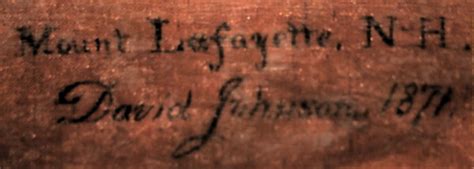 Mount Lafayette, N-H.
David Johnson, 1871.